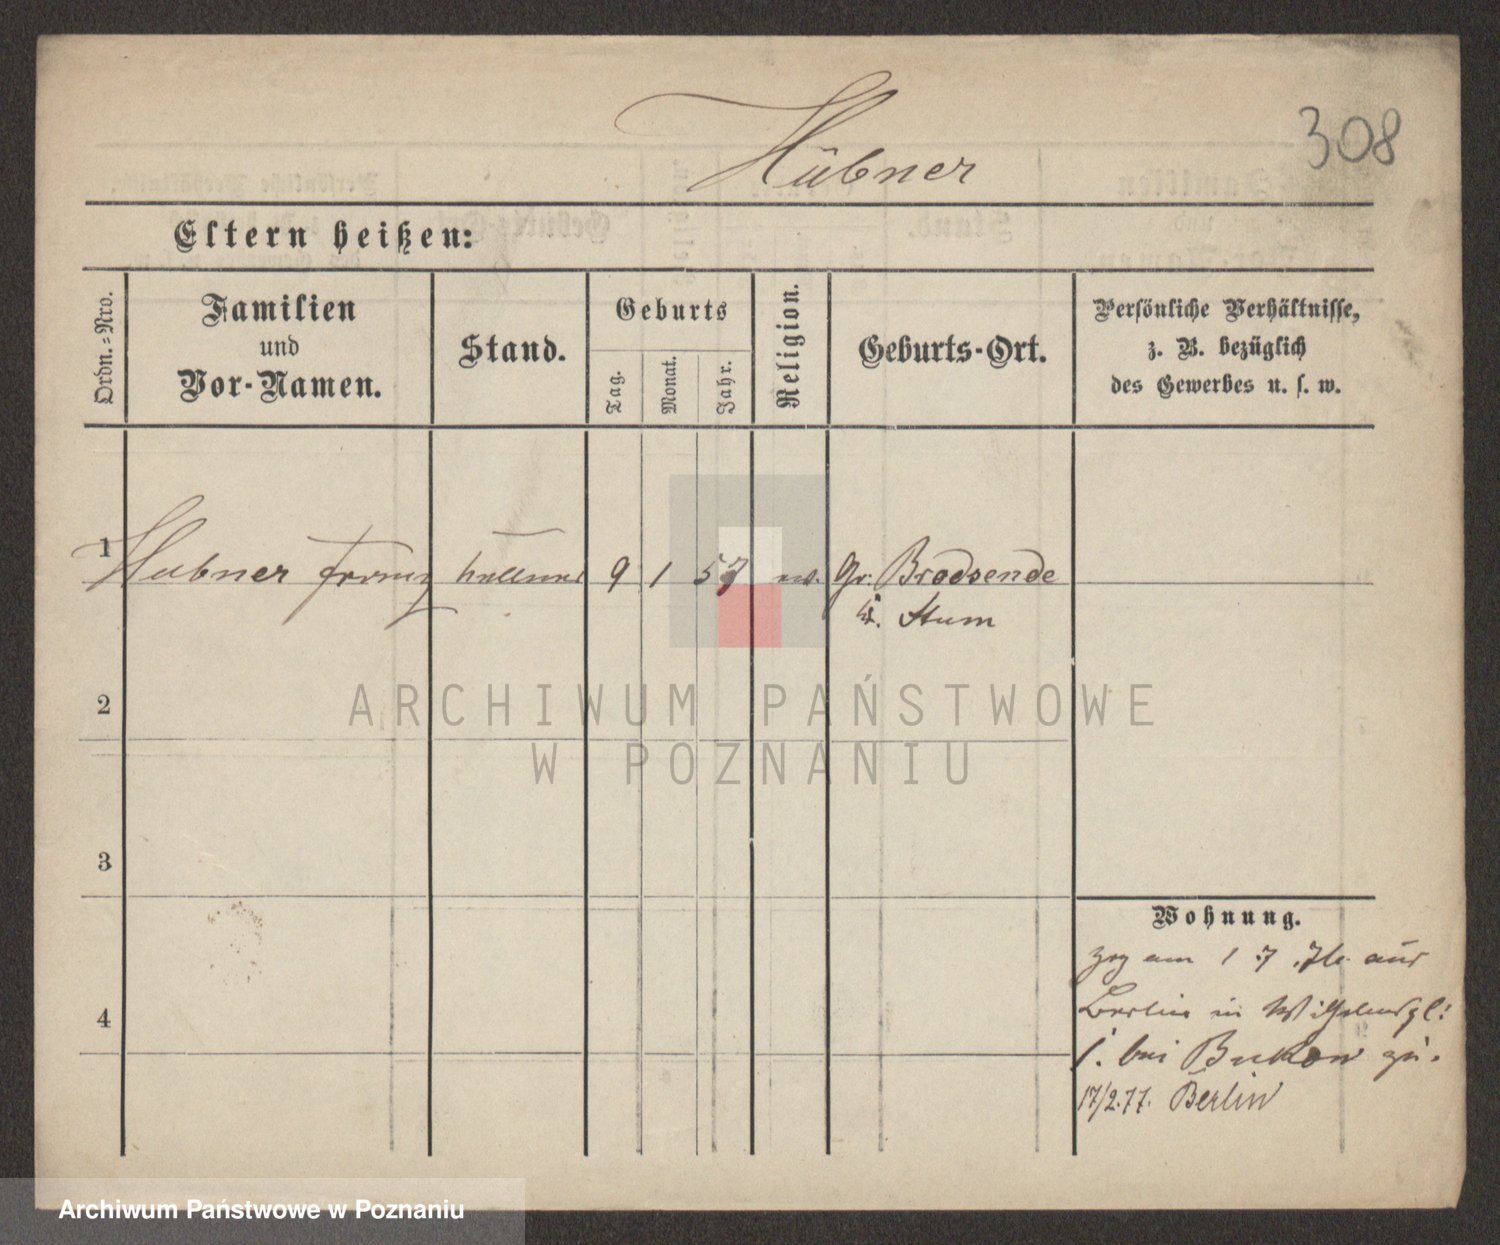 Hübner
308
Eltern heißen:
Ordn.=Nro.
Familien
und
Vor-Namen.
Stand.
Geburts
Tag.
Monat.
Jahr.
Religion.
Geburts-Ort.
Persönliche Verhältnisse,
z. B. bezüglich
des Gewerbes u. s. w.
1
Hubner Franz
Kellner
9
1
57
ev.
Gr: Brodsende
Stum
2
3
4
Wohnung.
zog am 1 7. 76. aus
Berlin in Wilhelmspl:
1. bei Bukow zu.
17/2.77. Berlin
ARCHIWUM PAŃSTWOWE
W POZNANIU
Archiwum Państwowe w Poznaniu